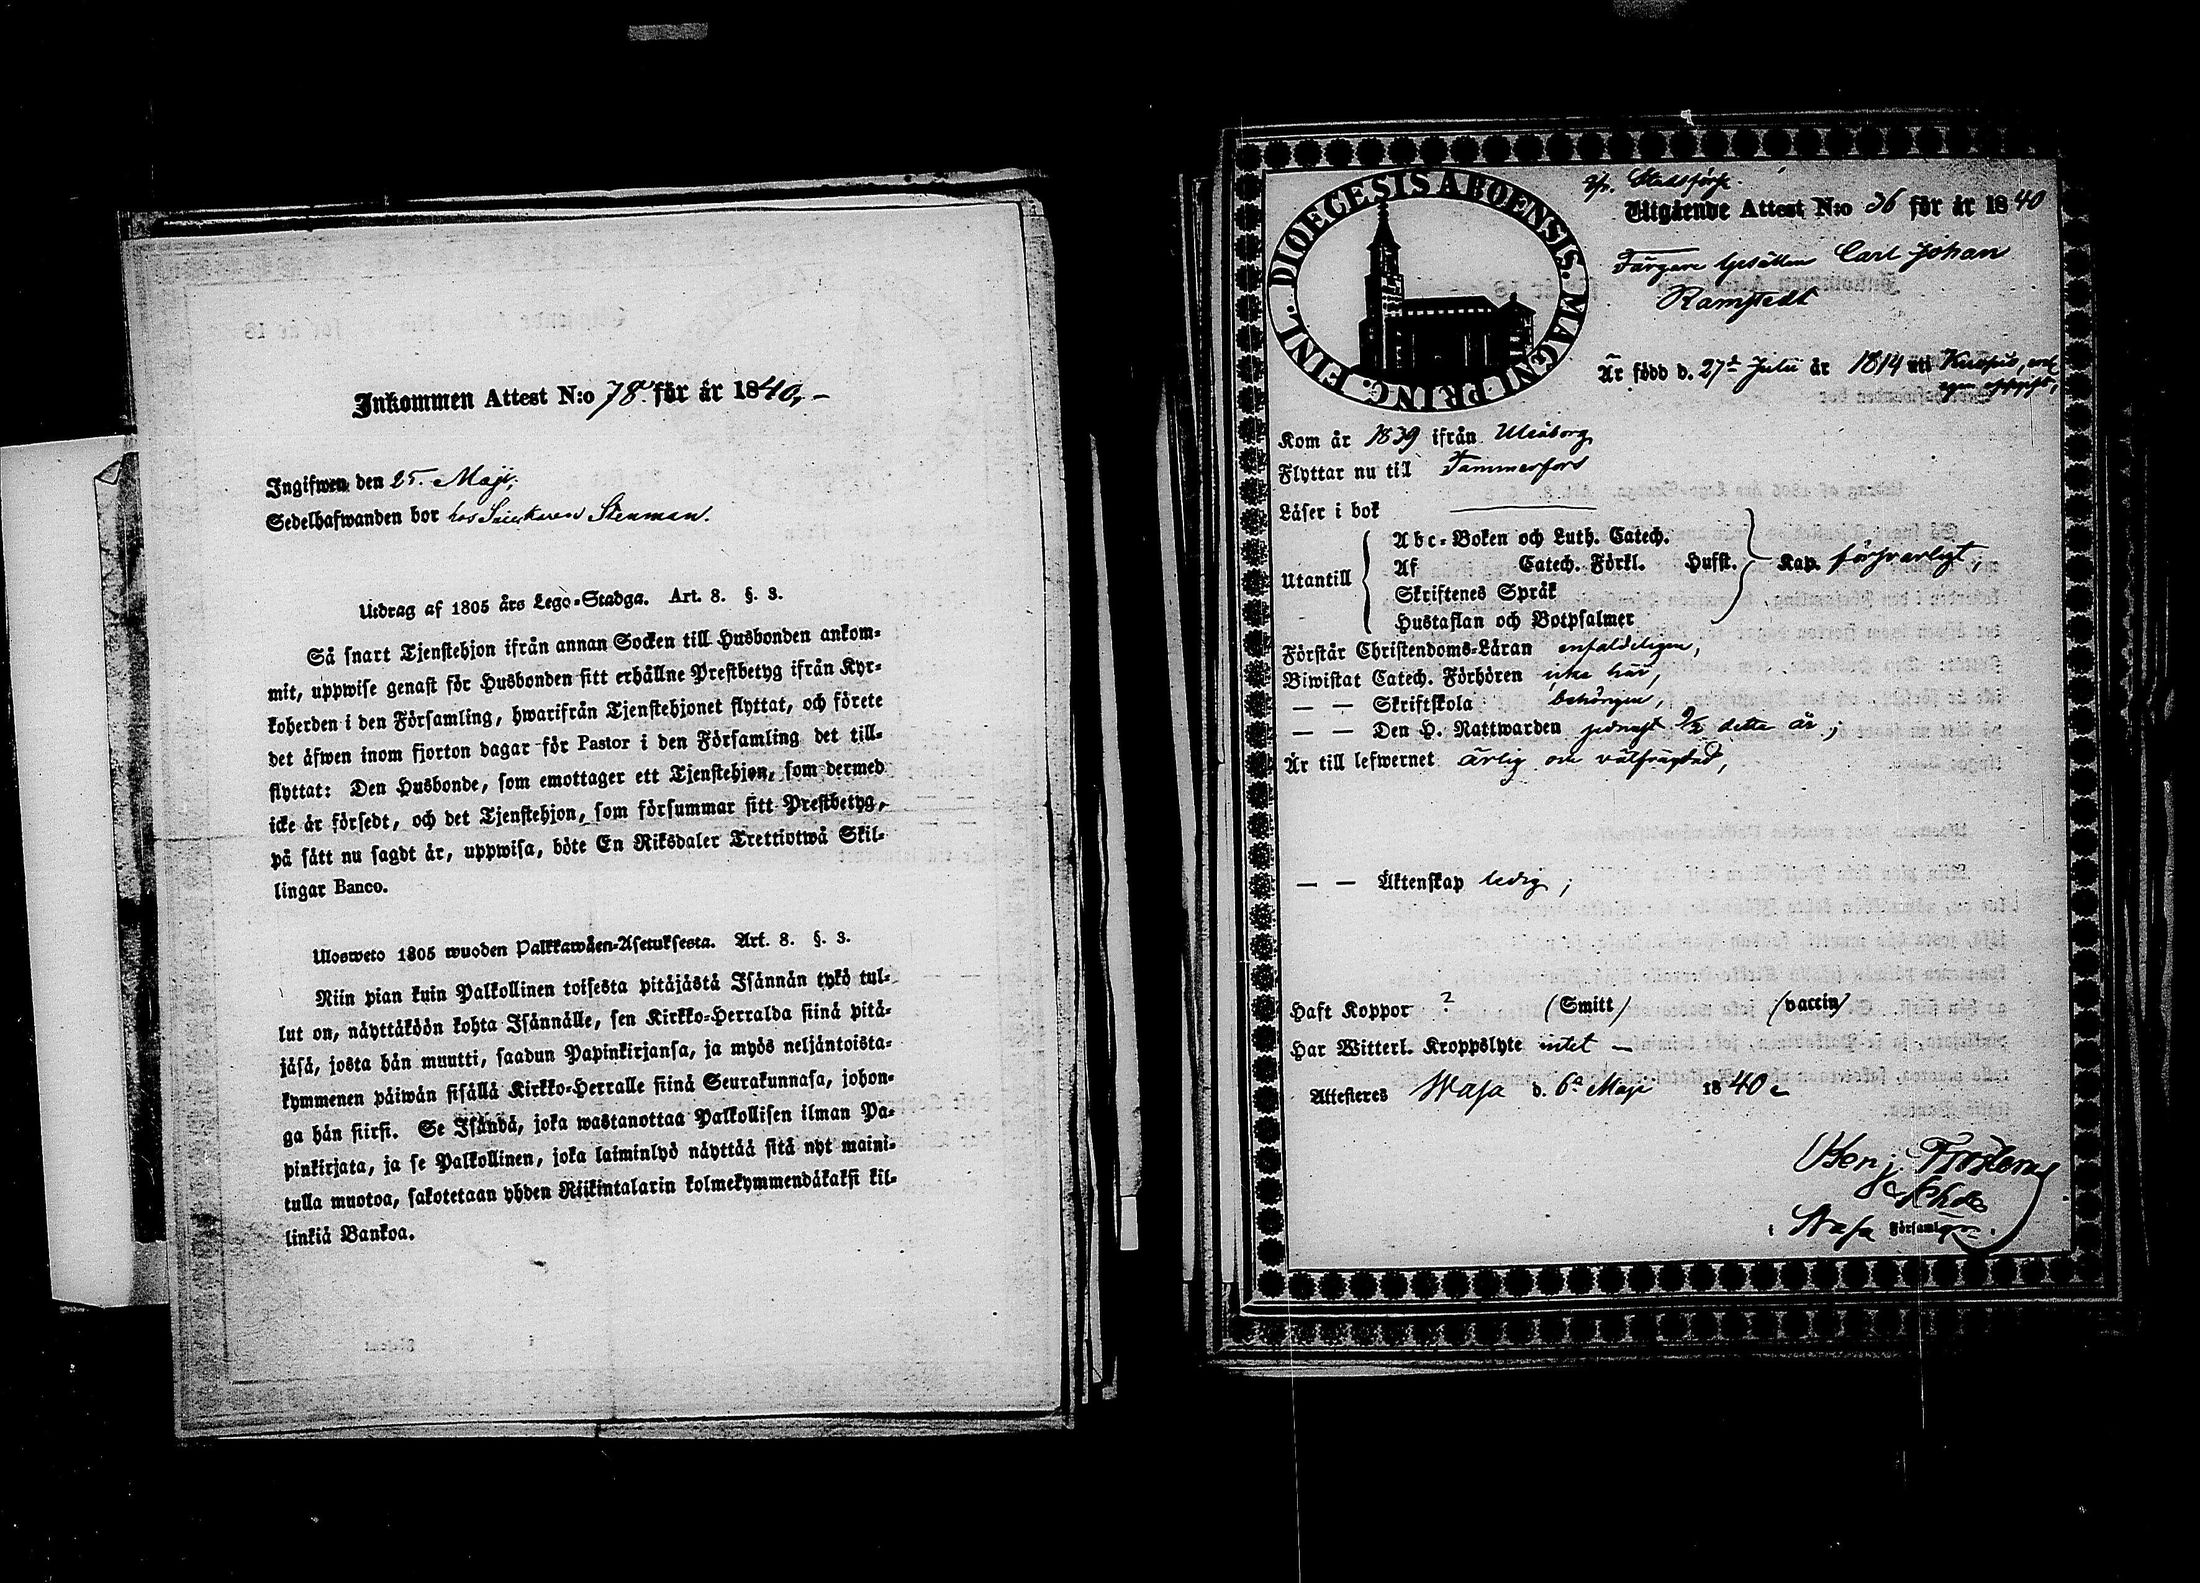 Inkommen Attest N:o 78 för år 1840,-
Ingifwen den 25. Maji,
Sedelhafwanden bor hos Snickaren Stenman.
Utdrag af 1805 års Lego-Stadga. Art. 8. §. 3.
Så snart Tjenstehjon ifrån annan Socken till Husbonden ankom-
mit, uppwise genast för Husbonden sitt erhållne Prestbetyg ifrån Kyr-
koherden i den Församling, hwarifrån Tjenstehjonet flyttat, och förete
det äfwen inom fjorton dagar för Pastor i den Församling det till-
flyttat: Den Husbonde, som emottager ett Tjenstehjon, som dermed
icke är försedt, och det Tjenstehjon, som försummar sitt Prestbetyg,
på sätt nu sagdt är, uppwisa, böte En Riksdaler Trettiotwå Skil-
lingar Banco.
Ulosweto 1805 wuoden Palkkawäen-Asetuksesta. Art. 8. §. 3.
Niin pian kuin Palkollinen toisesta pitäjästä Isännän tykö tul-
lut on, näyttäköön kohta Isännälle, sen Kirkko-Herralda siinä pitä-
jäsä, josta hän muutti, saadun Papinkirjansa, ja myös neljäntoista-
kymmenen päiwän sisällä Kirkko-Herralle siinä Seurakunnasa, johon-
ga hän siirsi. Se Isändä, joka wastanottaa Palkollisen ilman Pa-
pinkirjata, ja se Palkollinen, joka laiminlyö näyttää sitä nyt maini-
tulla muotoa, sakotetaan yhden Riikintalarin kolmekymmendäkaksi kil-
linkiä Bankoa.
DIOECESIS ABOENSIS. MAGNI PRINC. FINL.
Stadsförs.
Utgående Attest N:o 36 för år 1840
Färgare Gesällen Carl Johan
Ramstedt
Är född d. 27de Julii år 1814 uti Kuopio, enl.
egen uppgift,
Kom år 1839 ifrån Uleåborg
Flyttar nu till Tammerfors
Läser i bok
Utantill
Abc-Boken och Luth. Catech.
Af Catech. Förkl. Hufst. Kap. försvarligt,
Skriftenes Språk
Hustaflan och Botpsalmer
Förstår Christendoms-Läran enfaldeligen,
Biwistat Catech. Förhören icke här,
— — Skriftskola behörigen,
— — Den H. Nattwarden senast 9/2 detta år,
Är till lefwernet ärlig och välfrägdad,
— — Äktenskap ledig;
Haft Koppor ? (Smitt) (vaccin)
Har Witterl. Kroppslyte intet —
Attesteras Wasa d. 6te Maji 1840
i Wasa Församl.